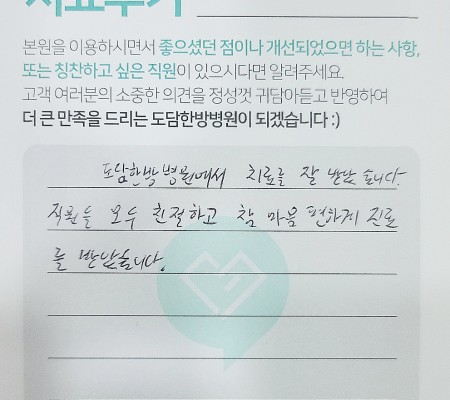 치료후기
본원을 이용하시면서 좋으셨던 점이나 개선되었으면 하는 사항,
또는 칭찬하고 싶은 직원이 있으시다면 알려주세요.
고객 여러분의 소중한 의견을 정성껏 귀담아듣고 반영하여
더 큰 만족을 드리는 도담한방병원이 되겠습니다 :)
도담한방 병원에서 치료를 잘 받았습니다.
직원들 모두 친절하고 참 마음 편하게 진료
를 받았습니다.